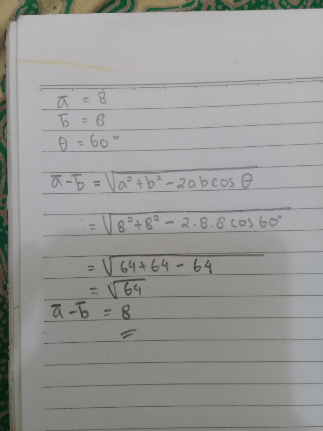 a̅ = 8
b̅ = 8
θ = 60°
a̅-b̅ = √a²+b²-2ab cos θ
= √8²+8²-2.8.8 cos 60°
= √64+64-64
= √64
a̅-b̅ = 8